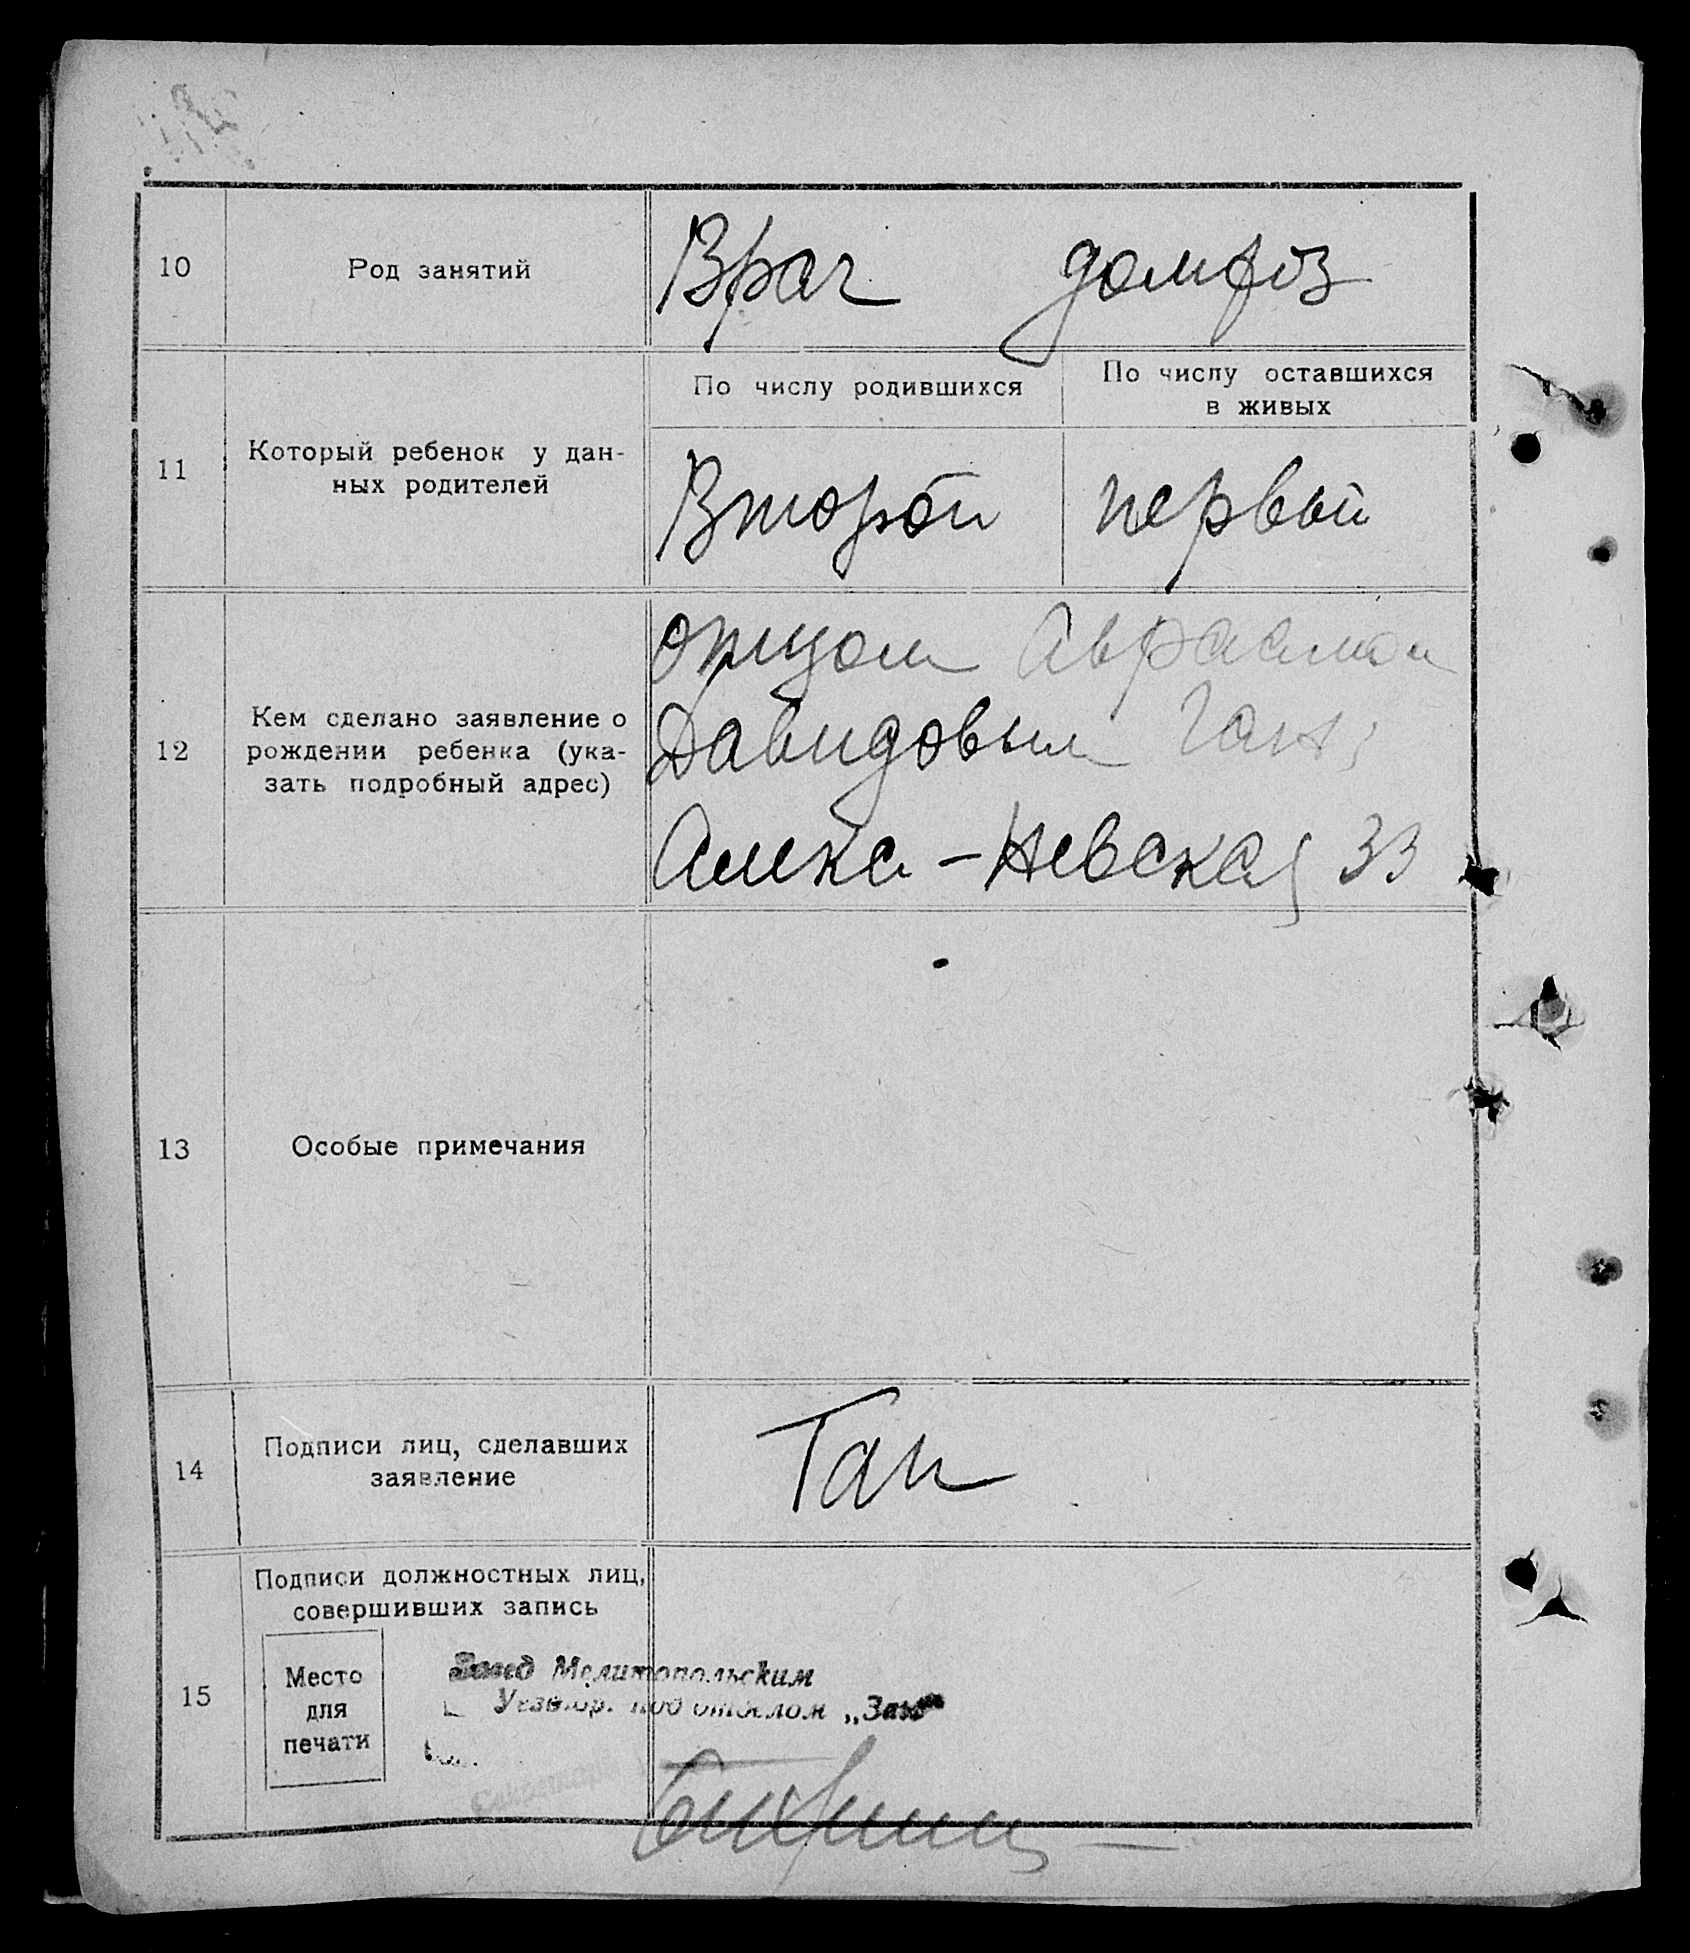 10
Род занятий
Врач
домхоз
11
Который ребенок у дан-
ных родителей
По числу родившихся
По числу оставшихся
в живых
Второй
первый
12
Кем сделано заявление о
рождении ребенка (ука-
зать подробный адрес)
отцом Авраамом
Давидовым Ган;
Алекса-Невская 33
13
Особые примечания
14
Подписи лиц, сделавших
заявление
Ган
15
Подписи должностных лиц,
совершивших запись
Место
для
печати
Завед Мелитопольским
под отделом „Загс"
Секретарь